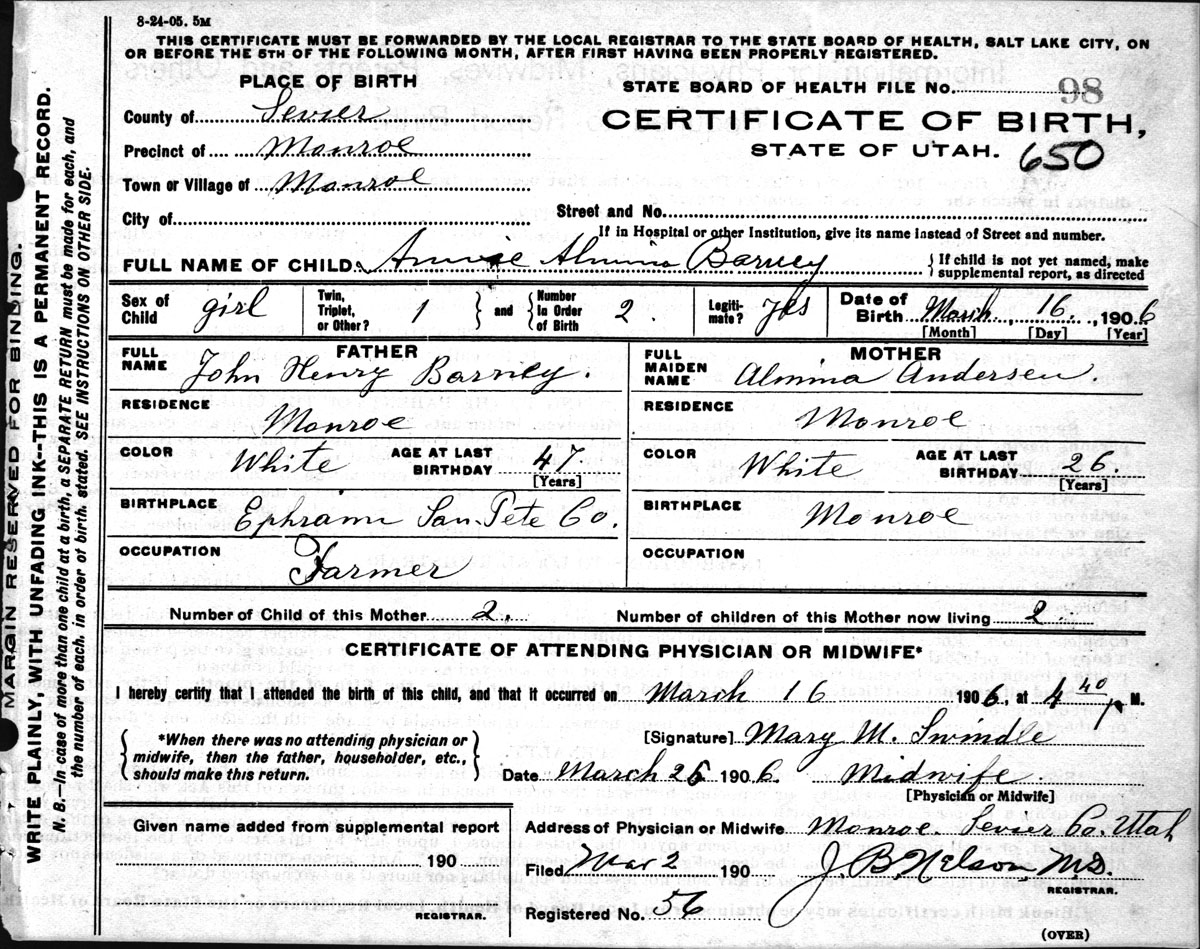 8-24-05. 5M
THIS CERTIFICATE MUST BE FORWARDED BY THE LOCAL REGISTRAR TO THE STATE BOARD OF HEALTH, SALT LAKE CITY, ON
OR BEFORE THE 5TH OF THE FOLLOWING MONTH, AFTER FIRST HAVING BEEN PROPERLY REGISTERED.
MARGIN RESERVED FOR BINDING.
WRITE PLAINLY, WITH UNFADING INK--THIS IS A PERMANENT RECORD.
N. B.—In case of more than one child at a birth, a SEPARATE RETURN must be made for each, and
the number of each. in order of birth. stated. SEE INSTRUCTIONS ON OTHER SIDE.
PLACE OF BIRTH
County of Sevier
Precinct of Monroe
Town or Village of Monroe
City of
STATE BOARD OF HEALTH FILE No. 98
CERTIFICATE OF BIRTH,
STATE OF UTAH. 650
Street and No.
If in Hospital or other Institution, give its name instead of Street and number.
FULL NAME OF CHILD. Annie Almina Barney
If child is not yet named, make
supplemental report, as directed
Sex of Child girl Twin, Triplet, or Other? 1 and Number in Order of Birth 2. Legiti- mate? Yes Date of Birth March, 16., 1906
[Month] [Day] [Year]
FATHER
FULL NAME John Henry Barney.
RESIDENCE Monroe
COLOR White AGE AT LAST BIRTHDAY 47.
[Years]
BIRTHPLACE Ephraim San-Pete Co.
OCCUPATION Farmer
MOTHER
FULL MAIDEN NAME Almina Andersen
RESIDENCE Monroe
COLOR White AGE AT LAST BIRTHDAY 26.
[Years]
BIRTHPLACE Monroe
OCCUPATION
Number of Child of this Mother 2. Number of children of this Mother now living 2
CERTIFICATE OF ATTENDING PHYSICIAN OR MIDWIFE*
I hereby certify that I attended the birth of this child, and that it occurred on March 16 1906, at 4 40 P. M.
*When there was no attending physician or
midwife, then the father, householder, etc.,
should make this return.
[Signature] Mary M. Swindle
Date March 26 1906. Midwife
[Physician or Midwife]
Given name added from supplemental report
190
REGISTRAR.
Address of Physician or Midwife Monroe. Sevier Co. Utah
Filed Mar 2 190 J. B. Nelson, M.D.
REGISTRAR.
Registered No. 56
(OVER)